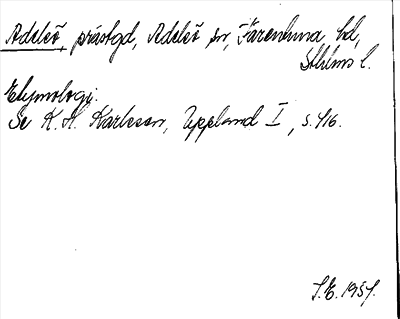 Adelsö, prästgd, Adelsö sn, Färentuna hd,
Sthlms l.
Etymologi.
Se K. H. Karlsson, Uppland I, s. 416.
S.E. 1951.